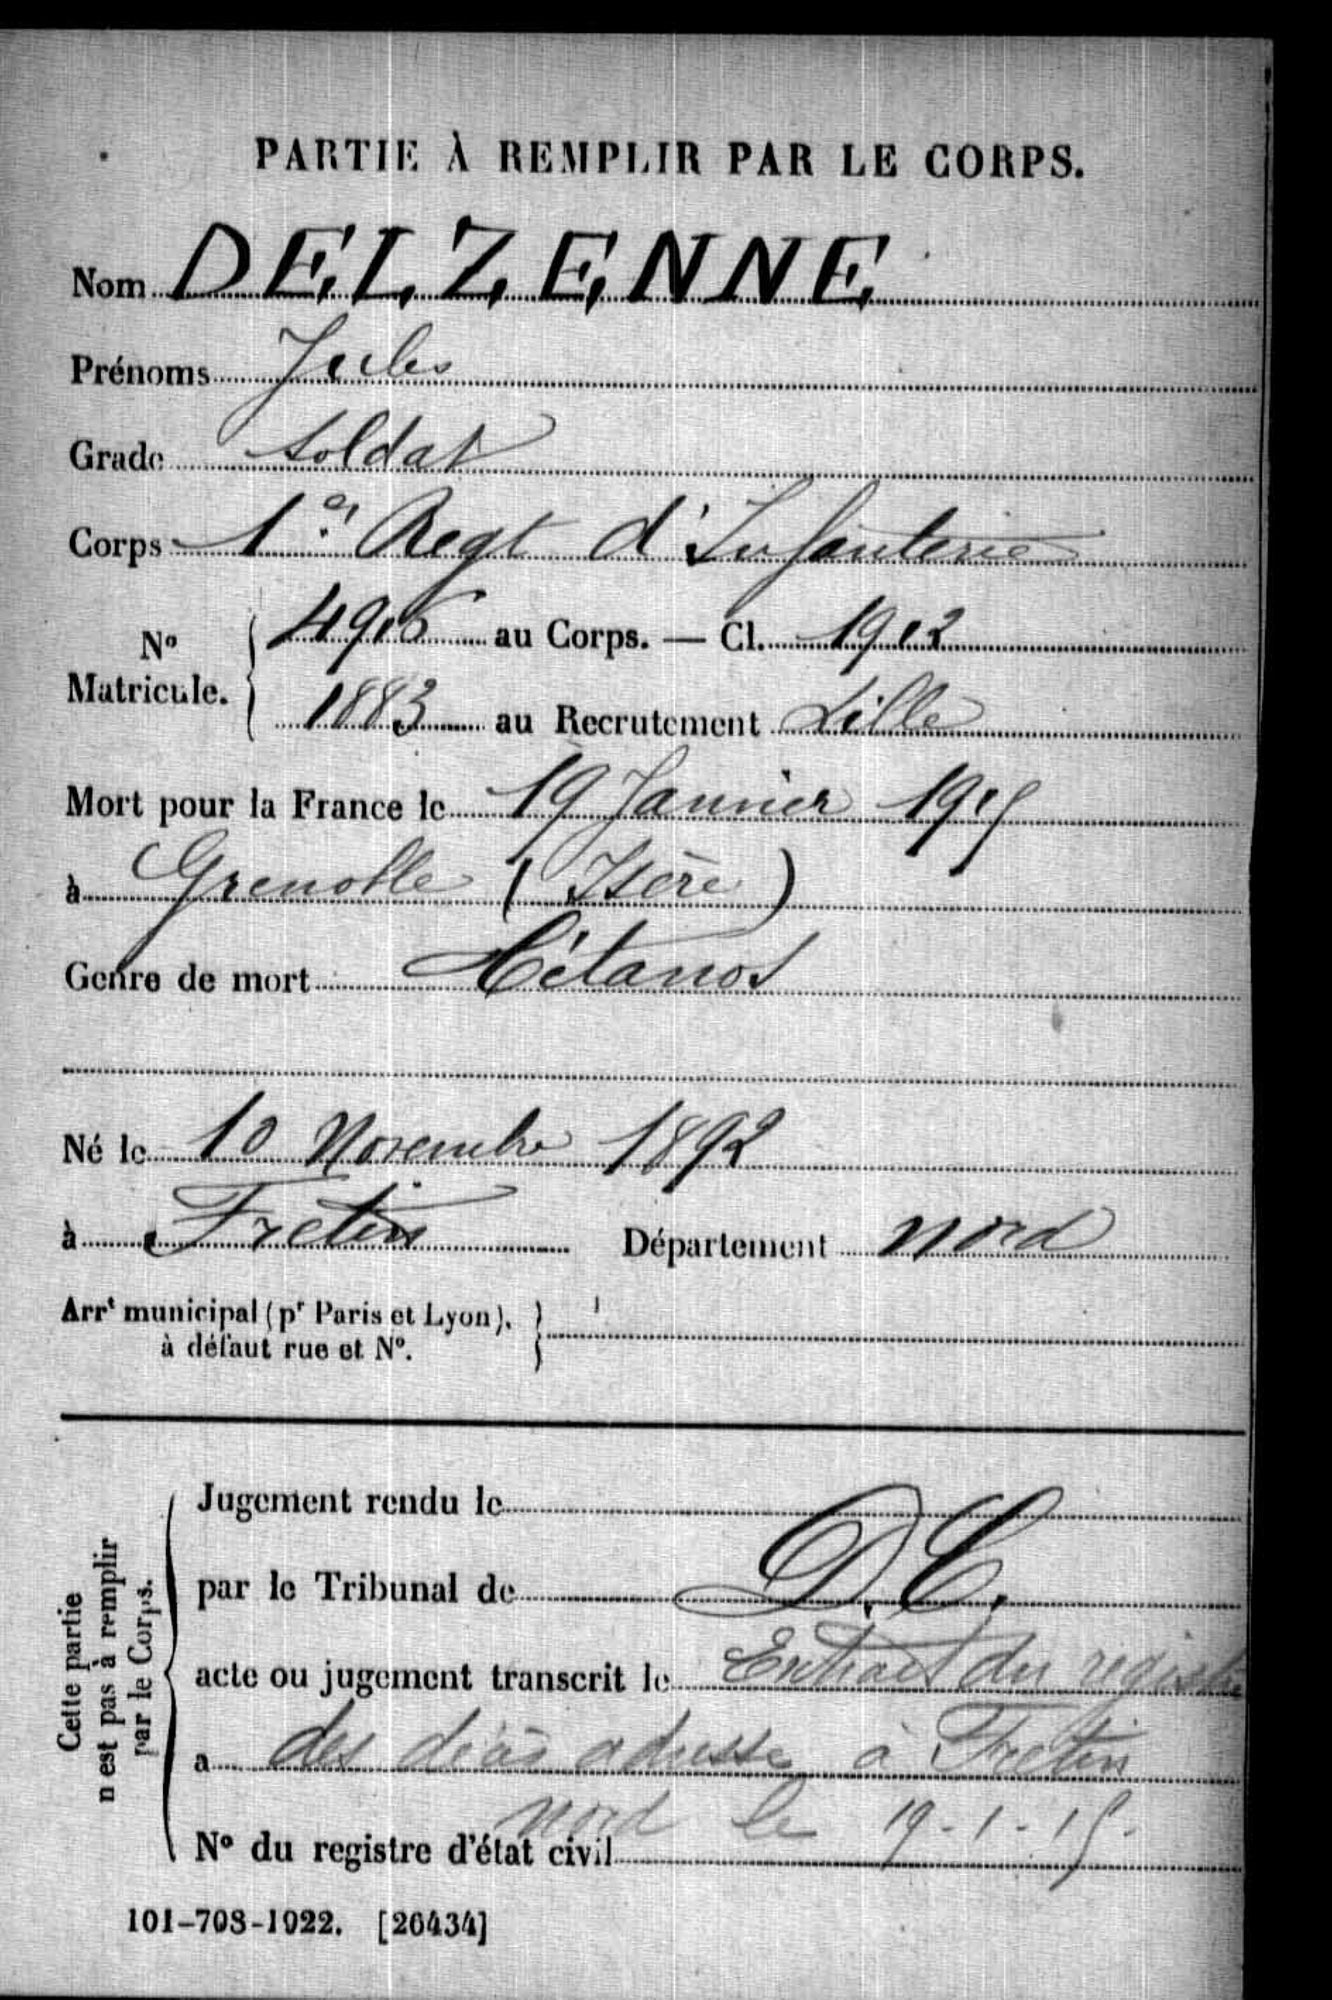 PARTIE À REMPLIR PAR LE CORPS.
Nom DELZENNE
Prénoms Jules
Grade Soldat
Corps 1er Regt d'Infanterie
No Matricule. 4906 au Corps. — Cl. 1912
1883 au Recrutement Lille
Mort pour la France le 19 Janvier 1915
à Grenoble (Isère)
Genre de mort Tétanos
Né le 10 Novembre 1892
à Fretin Département Nord
Arrt municipal (pr Paris et Lyon),
à défaut rue et No.
Cette partie
n'est pas à remplir
par le Corps.
Jugement rendu le
par le Tribunal de D.C.
acte ou jugement transcrit le Extrait du registre
a des décès adressé à Fretin
Nord le 19-1-15.
No du registre d'état civil
101-708-1922. [26434]